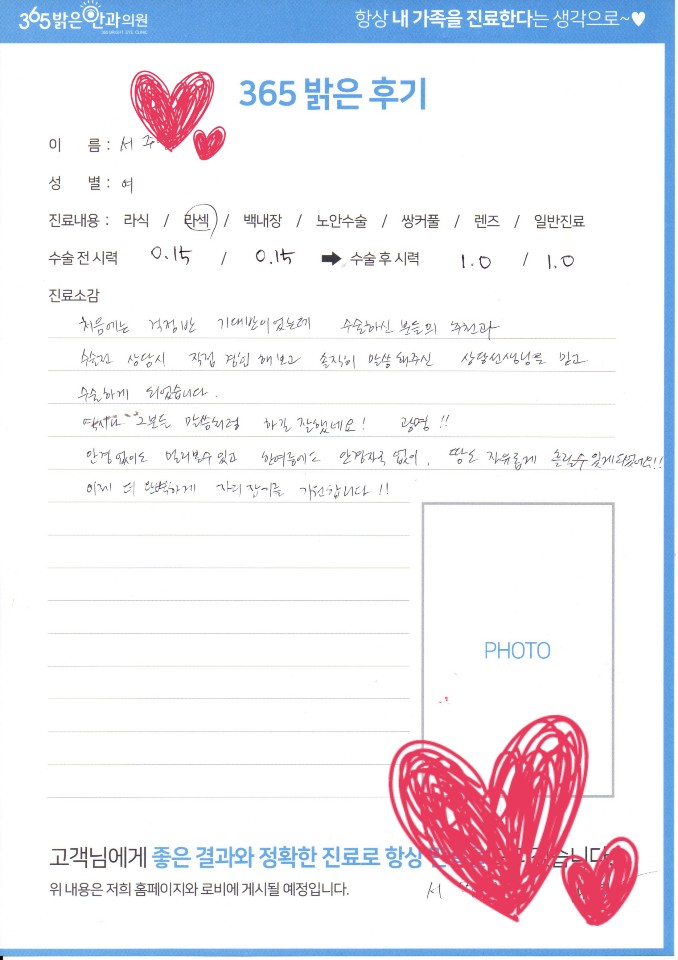 365밝은안과의원
365 BRIGHT EYE CLINIC
항상 내 가족을 진료한다는 생각으로~♥
365 밝은 후기
이 름 : 서 주
성 별 : 여
진료내용 : 라식 / 라섹 / 백내장 / 노안수술 / 쌍커풀 / 렌즈 / 일반진료
수술 전 시력 0.15 / 0.15 ➡ 수술 후 시력 1.0 / 1.0
진료소감
처음에는 걱정반 기대반이었는데 수술하신 분들의 추천과
수술전 상담시 직접 경험해보고 솔직히 말씀해주신 상담선생님을 믿고
수술하게 되었습니다.
역시 그분들 말씀처럼 하길 잘했네요! 광명!!
안경 없이도 멀리볼수있고 한여름에도 안경자국 없이, 땀도 자유롭게 흘릴수 있게되었네요!!
이제 더 완벽하게 자리 잡기를 기원합니다!!
PHOTO
고객님에게 좋은 결과와 정확한 진료로 항상
위 내용은 저희 홈페이지와 로비에 게시될 예정입니다.
서